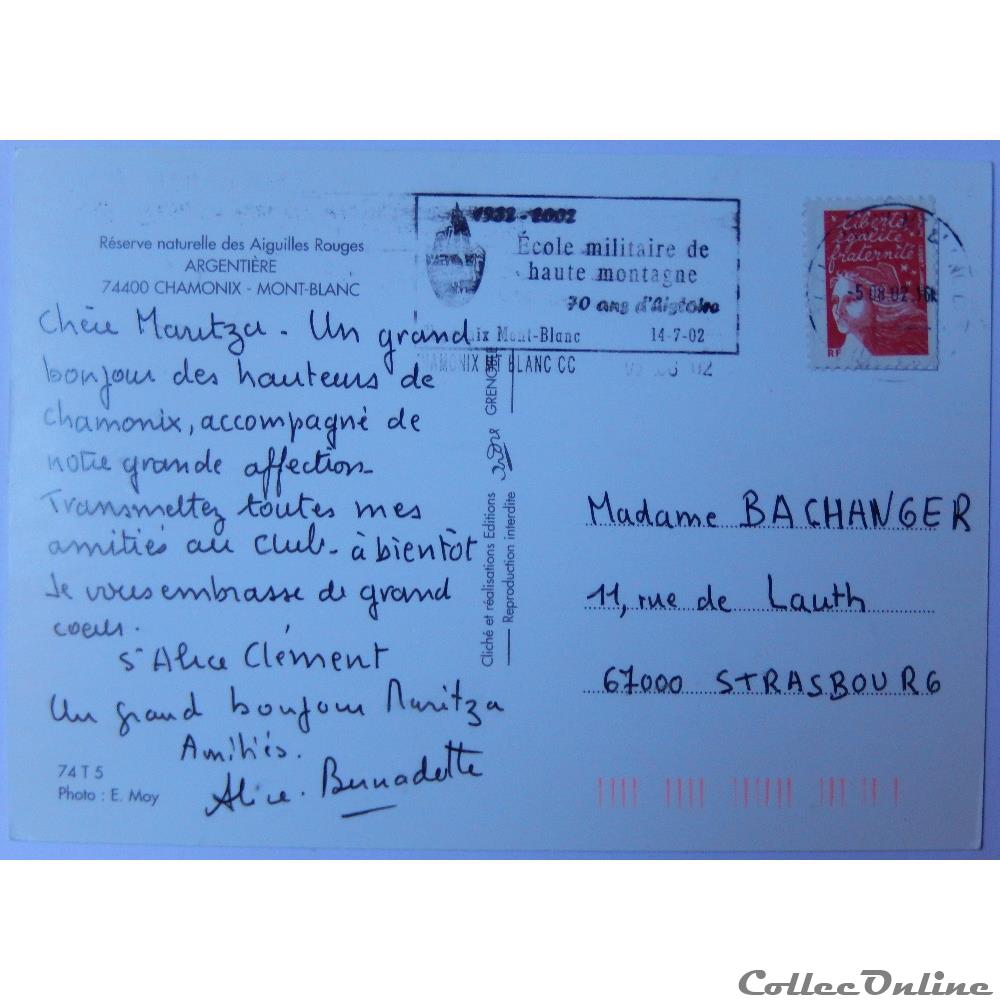 Réserve naturelle des Aiguilles Rouges
ARGENTIÈRE
74400 CHAMONIX - MONT-BLANC
1932-2002
École militaire de
haute montagne
70 ans d'histoire
Mont-Blanc 14-7-02
BLANC CC
liberté
égalité
fraternité
RF
02 16
Chère Maritza - Un grand
bonjour des hauteurs de
Chamonix, accompagné de
notre grande affection
Transmettez toutes mes
amitiés au Club - à bientôt
Je vous embrasse de grand
coeur.
Sr Alice Clément
Un grand bonjour Maritza
Amitiés.
Alice. Bernadette
74 T 5
Photo : E. Moy
Cliché et réalisations Editions André GRENOBLE
Reproduction interdite
Madame BACHANGER
11, rue de Lauth
67000 STRASBOURG
CollecOnline